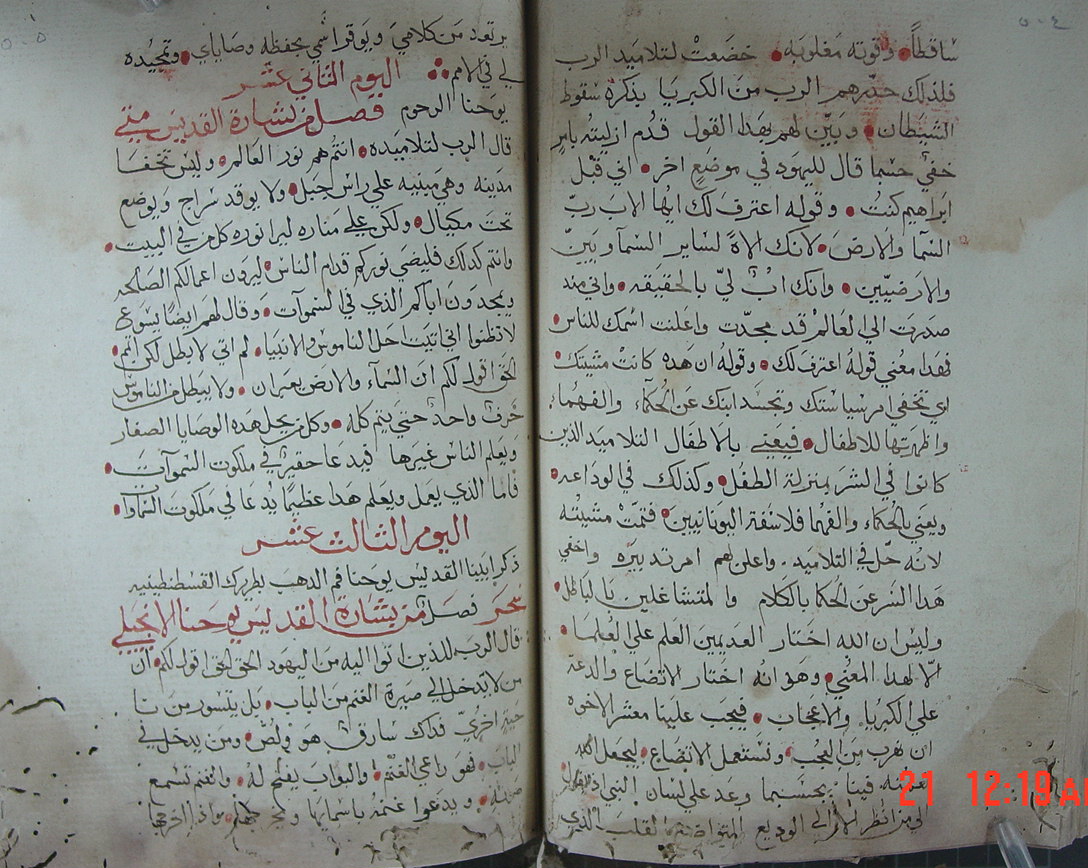 ساقطاً وقوته مغلوبه خضعت لتلاميد الرب
فلذلك حذرهم الرب من الكبريا بذكره سقوط
الشيطان وبين لهم بهذا القول قدم ازليته بامر
خفي حسبما قال لليهود في موضع اخر اني قبل
ابراهيم كنت وقوله اعترف لك ايها الاب رب
السما والارض لانك الاهً لساير السماويين
والارضيين وانك ابٌ لي بالحقيقه واني مند
صدرت الي العالم قد مجدت واعلنت اسمك للناس
فهدا معني قوله اعترف لك وقوله ان هده كانت مشيتك
اي تخفي امر سياستك وتجسد ابنك عن الحكماء والفهماء
واظهرتها للاطفال فيعني بالاطفال التلاميد الذين
كانوا في الشر بمنزلة الطفل وكذلك في الوداعه
ويعني بالحكماء والفهما فلاسفة اليونانيين فتمت مشيئته
لانه حل في التلاميد واعلن لهم امر تدبيره واخفي
هدا السر عن الحكما بالكلام والمتشاغلين بالباطل
وليس ان الله اختار العديمين العلم علي العلما
الّا لهدا المعني وهو انه اختار الاتضاع والدعه
علي الكبريا والاعجاب فيجب علينا معشر الاخوه
ان نهرب من العجب ونستعمل الاتضاع ليجعل الله
فينا حسبما وعد علي لسان النبي
الي من انظر الا الي الوديع المتواضع القلب الذي
٥٠٤
يرتعد من كلامي ويوقر اسمي بحفظه وصاياي وتمجيده
لي في الامم اليوم الثاني عشر
يوحنا الرحوم فصل من بشارة القديس متي
قال الرب لتلاميده انتم هم نور العالم وليس تخفا
مدينه وهي مبنيه علي راس جبل ولا يوقد سراج ويوضع
تحت مكيال ولكن علي مناره ليرا نوره كلمن في البيت
وانتم كدلك فليضي نوركم قدام الناس ليرون اعمالكم الصالحه
ويمجدون اباكم الذي في السموات وقال لهم ايضا يسوع
لا تظنوا اني اتيت احل الناموس والانبيا لم اتي لابطل لكن اتم
الحق اقول لكم ان السماء والارض يعبران ولا يبطل من الناموس
حرف واحد حتي يتم كله وكل من يحل هده الوصايا الصغار
ويعلم الناس غيرها فيدعا حقير في ملكوت السموات
فاما الذي يعمل ويعلم هدا عظيما يدعا في ملكوت السماوات
اليوم الثالث عشر
ذكر ابينا القديس يوحنا فم الدهب بطريرك القسطنطينيه
سحر فصل من بشارة القديس يوحنا الانجيلي
قال الرب للذين اتوا اليه من اليهود الحق الحق اقول لكم ان
من لا يدخل الي صيرة الغنم من الباب بل يتسور من نا
حيةٍ اخري فداك سارق هو ولص ومن يدخل في
الباب فهو راعي الغنم والبواب يفتح له والغنم تسمع
صوته ويدعوا غنمه باسمايها ويخرجهم واذا اخرجها
٥٠٥
21 12:19 A